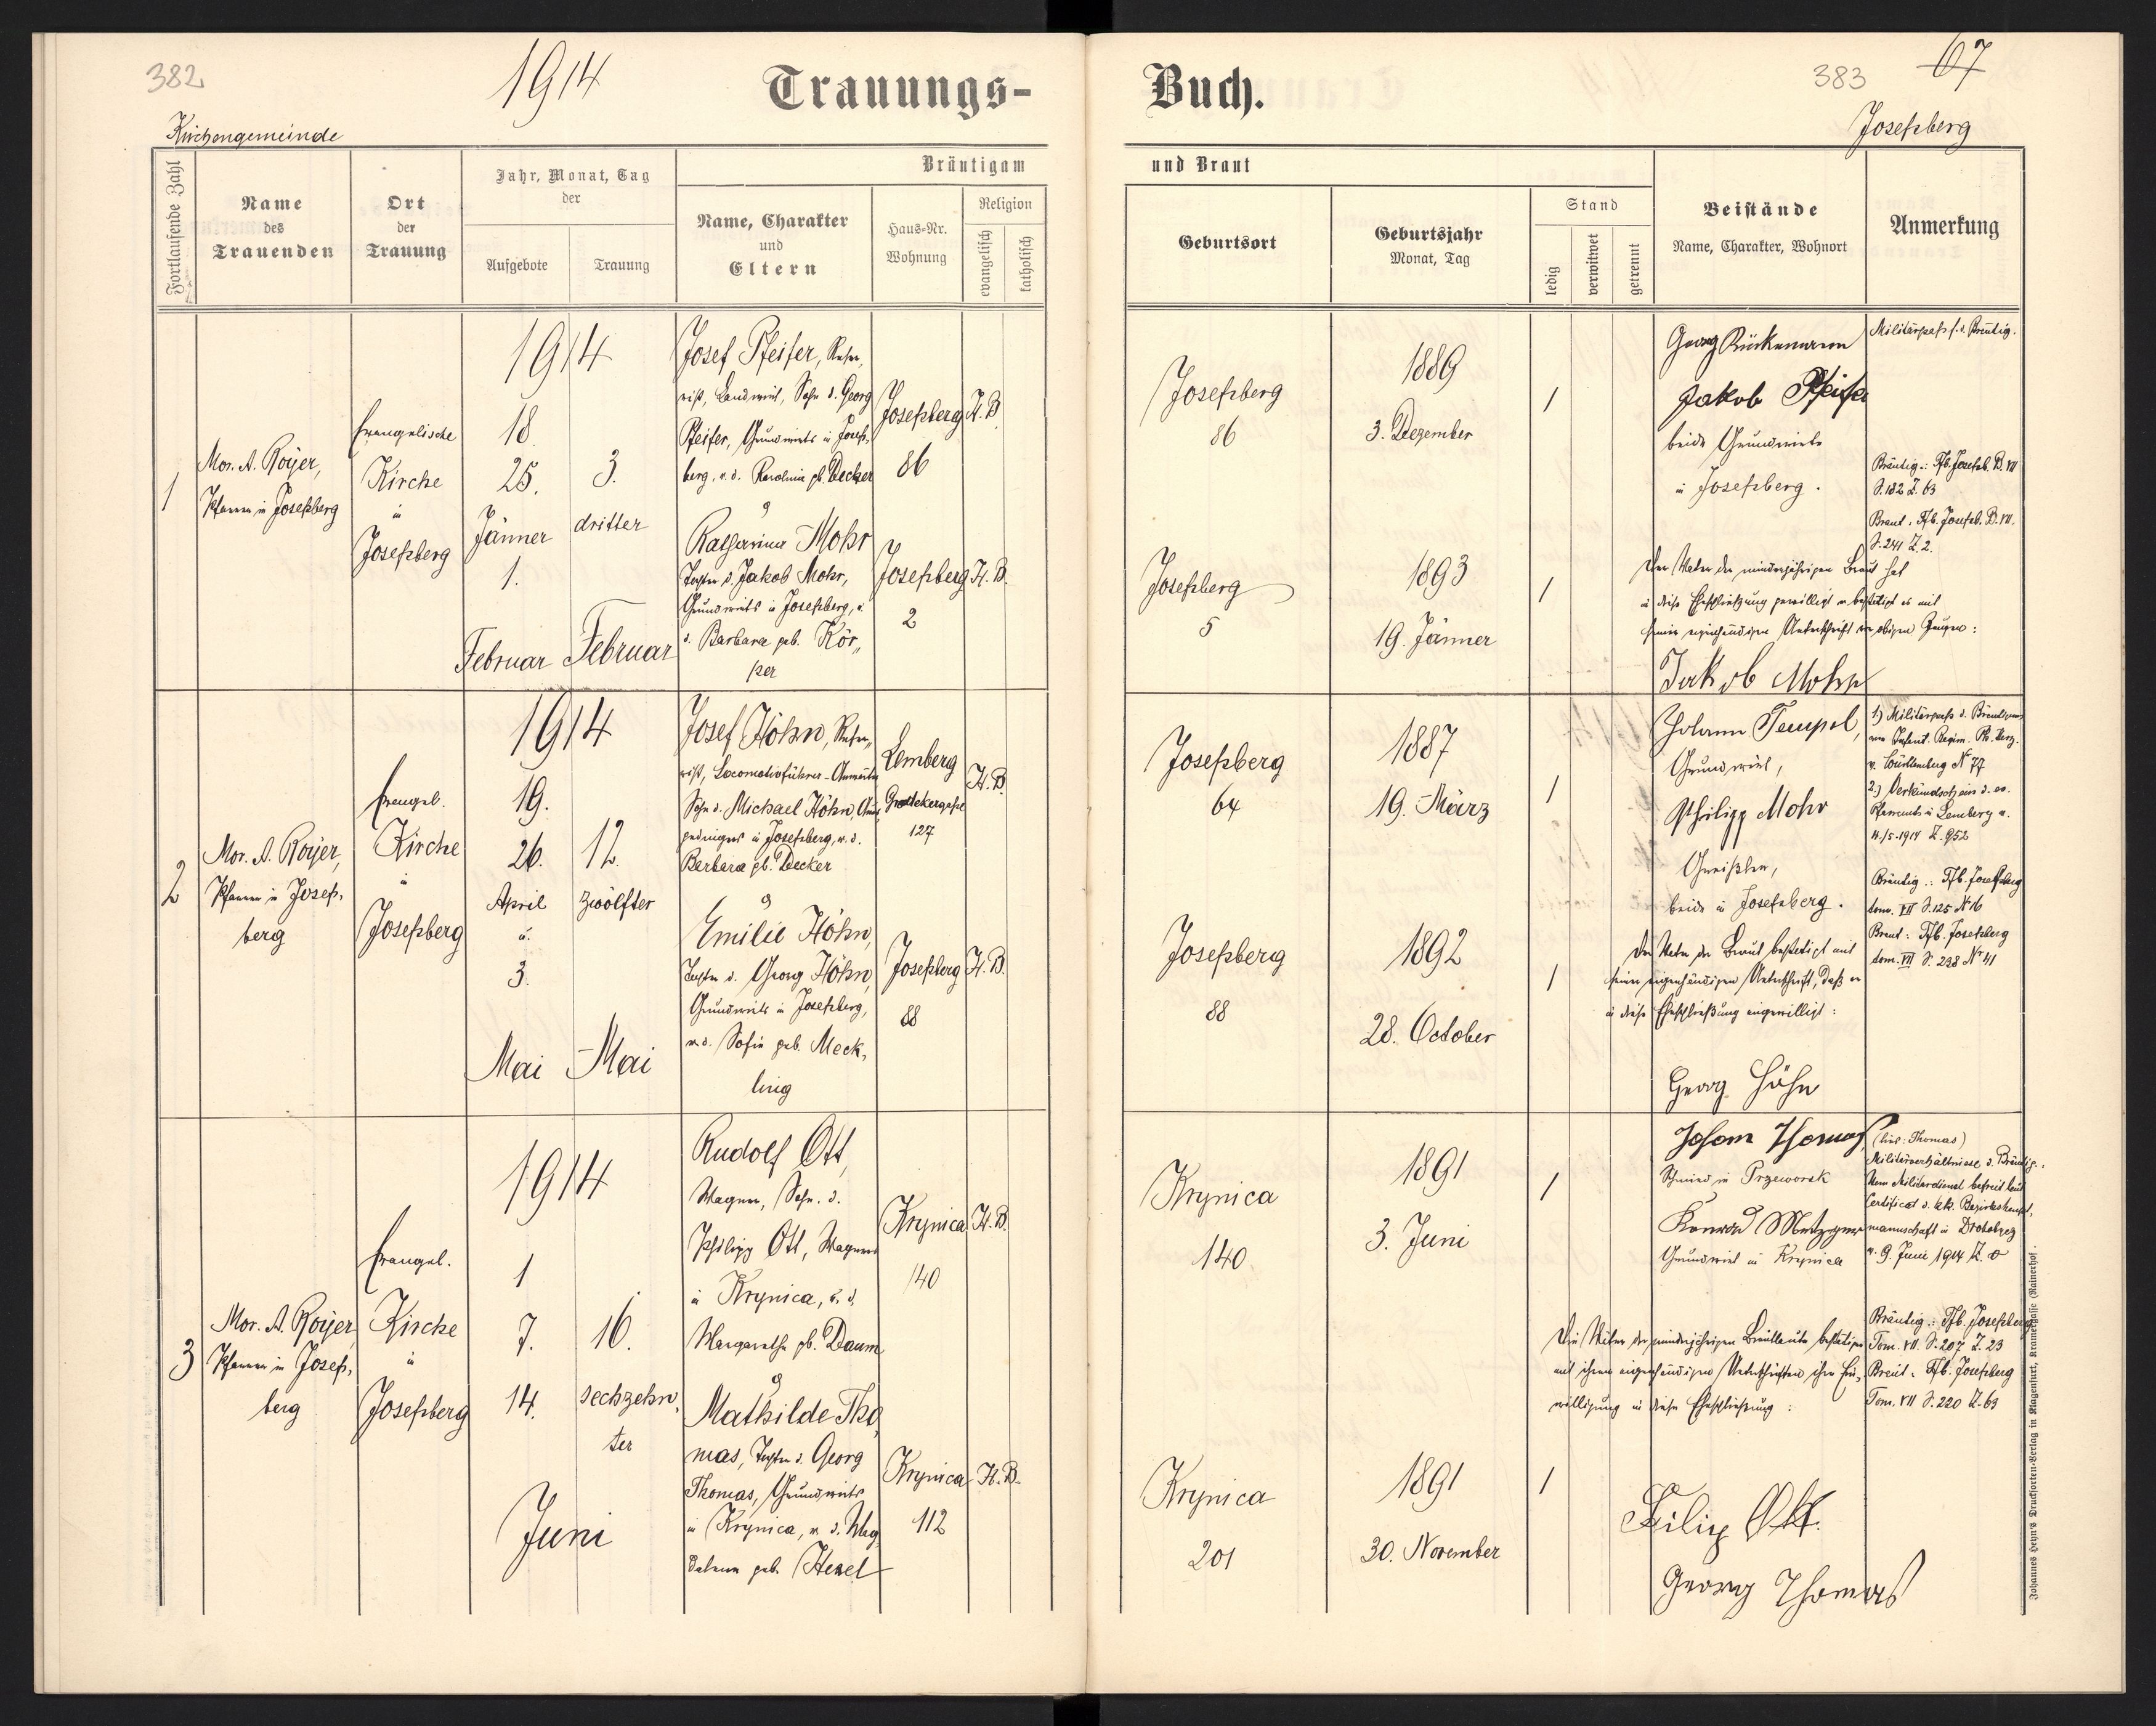 382
1914
Trauungs-
Kirchengemeinde
Fortlaufende Zahl
Name
des
Trauenden
Ort
der
Trauung
Jahr, Monat, Tag
der
Aufgebote
Trauung
Bräutigam
Name, Charakter
und
Eltern
Haus-Nr.
Wohnung
Religion
evangelisch
katholisch
1
Mor. A. Royer,
Pfarrer in Josefsberg
Evangelische
Kirche
in
Josefsberg
1914
18.
25.
Jänner
1.
Februar
3.
dritter
Februar
Josef Pfeifer, Reser-
vist, Landwirt, Sohn d. Georg
Pfeifer, Grundwirts in Josefs-
berg, u. d. Karolina gb. Decker
Josefsberg
86
H. B.
Katharina Mohr
Tochter d. Jakob Mohr,
Grundwirts in Josefsberg, u.
d. Barbara geb. Kör-
per
Josefsberg
2
H. B.
2
Mor. A. Royer,
Pfarrer in Josefs-
berg
Evangel.
Kirche
in
Josefsberg
1914
19.
26.
April
u.
3.
Mai
12.
zwölfter
Mai
Josef Höhn, Reser-
vist, Locomotivführer-Anwärter
Sohn d. Michael Höhn, Aus-
gedingers in Josefsberg, u. d.
Barbara gb. Decker
Lemberg
Grodekergasse
127
H. B.
Emilie Höhn,
Tochter d. Georg Höhn,
Grundwirts in Josefsberg,
u. d. Sofie geb. Meck-
ling
Josefsberg
88
H. B.
3
Mor. A. Royer
Pfarrer in Josefs-
berg
Evangel.
Kirche
in
Josefsberg
1914
1
7.
14.
Juni
16.
sechzehn-
ter
Rudolf Ott,
Wagner, Sohn d.
Philipp Ott, Wagners
in Krynica, u. d.
Margaretha gb. Daum
Krynica
140
H. B.
Mathilde Tho-
mas, Tochter d. Georg
Thomas, Grundwirts
in Krynica, u. d. Mag-
dalena geb. Hexel
Krynica
112
H. B.
Buch.
383
67
Josefsberg
und Braut
Geburtsort
Geburtsjahr
Monat, Tag
Stand
ledig
verwitwet
getrennt
Beistände
Name, Charakter, Wohnort
Anmerkung
Josefsberg
86
1889
3. Dezember
1
Georg Rückemann
Jakob Pfeifer
beide Grundwirte
in Josefsberg.
Militärpass f. d. Bräutig.
Bräutig.: Tfb. Josefsb. B. VII
S. 182 Z. 63
Braut: Tfb. Josefsb. B. VII.
S. 241 Z. 2.
Josefsberg
5
1893
19. Jänner
1
Der Vater der minderjährigen Braut hat
in diese Eheschließung gewilligt u. bestätigt es mit
seiner eigenhändigen Unterschrift vor obigen Zeugen:
Jakob Mohr
Josefsberg
64
1887
19. März
1
Johann Tempel,
Grundwirt,
Philipp Mohr
beide in Josefsberg.
1) Militärpass d. Bräutigams
vom Infant. Regim. Ph. Herz.
v. Württemberg N° 77
2.) Verkündschein d. ev.
Pfarramts in Lemberg v.
4./5. 1914 Z. 952
Bräutig.: Tfb. Josefsberg
tom. VII S. 125 N° 16
Braut: Tfb. Josefsberg
tom. VII S. 238 N° 41
Josefsberg
88
1892
28. October
1
Der Vater der Braut bestätigt mit
seiner eigenhändigen Unterschrift, daß er
in diese Eheschließung eingewilligt:
Georg Höhn
Krynica
140
1891
3. Juni
1
Johann Thomas,
Schmied in Przeworsk
Konrad Metzger
Grundwirt in Krynica
(lies: Thomas)
Militärverhältnisse d. Bräutig.:
Vom Militärdienst befreit laut
Certificat d. k.k. Bezirkshaupt-
mannschaft in Drohobycz
v. 9. Juni 1914 Z. 0
Bräutig.: Tfb. Josefsberg
Tom. VII. S. 207 Z. 23
Braut: Tfb. Josefsberg
Tom. VII S. 220 Z. 63
Die Väter der minderjährigen Brautleute bestätigen
mit ihren eigenhändigen Unterschriften ihre Ein-
willigung in diese Eheschließung:
Krynica
201
1891
30. November
1
Filip Ott.
Georg Thomas
Johannes Heyn's Drucksorten-Verlag in Klagenfurt, Kramergasse (Rainerhof).